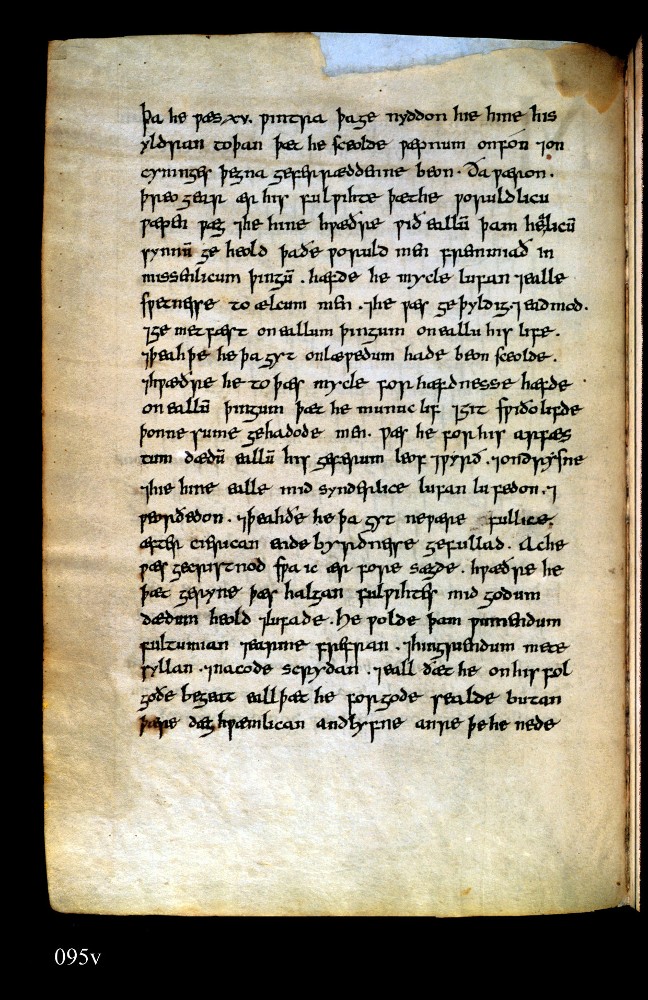 þa he ƿæs xv. ƿintra þa ge nyddon hie hine his
yldran to þan þæt he sceolde ƿæpnum onfón ⁊on
cyninges þegna geferræddenne beon. Ða ƿæron.
þreo gear ær his fulƿihte þæt he ƿoruldlicu
ƿæpen ƿæg ⁊he hine hƿæðre ƿið eallū þam
synnū ge heold þa ðe ƿoruld men fremmað in
missenlicum þingū. hæfde he mycle lufan ⁊ealle
sƿetnesse to ælcum men. ⁊he ƿæs geþyldig. ⁊eadmod.
⁊ge metfæst on eallum þingum on eallū his life.
⁊þeah þe he þa gyt on læƿedum hade beon sceolde.
⁊hƿæðre he to þæs mycle forhæfdnesse hæfde
on eallū þingum þæt he munuc lif ⁊git sƿiðo lifde
þonne sume gehadode men. ƿæs he for his arfæs
tum dædū eallū his geferum leof ⁊ƿyrð. ⁊ondrysne
⁊hie hine ealle mid synderlice lufan lufedon. ⁊
ƿeorðedon. ⁊þeahðe he þa gyt ne ƿære fullice.
æfter cierican endebyrdnesse gefullad. Ac he
ƿæs gecristnod sƿa ic ær fore sægde. hƿæðre he
þæt geryne þæs halgan fulƿihtes mid godum
dædum heold ⁊lufade. He ƿolde þam ƿinnendum
fultumian ⁊earme frefran. ⁊hingriendum mete
syllan. ⁊nacode scrydan. ⁊eall ðæt he on his fol
goðe begeat eall þæt he for gode sealde butan
þære dæghƿæmlican andlyfne anre þe he nede
095v